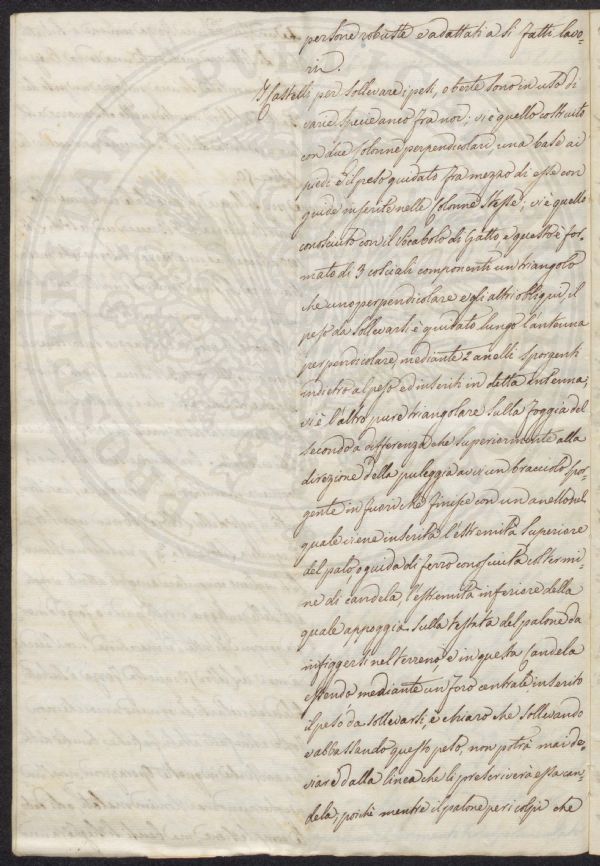 persone robuste e adattati a si fatti lavo-
rii.
I Castelli per sollevare i pesi, o berte sono in uso di
varie specie anco fra noi; vi è quello costruito
con due Colonne perpendicolari, una base ai
piedi e il peso guidato fra mezzo di esse con
guide inserite nelle Colonne stesse; vi è quello
conosciuto con il Vocabolo di Gatto, e questo è for-
mato di 3 cosciali componenti un triangolo
che uno perpendicolare e gli altri obliqui, il
peso da sollevarsi è guidato lungo l'antenna
perpendicolare, mediante 2 anelli sporgenti
indietro al peso ed inseriti in detta antenna;
vi è l'altro pure triangolare sulla foggia del
secondo a differenza che superiormente alla
direzione della puleggia avvi un bracciolo spor-
gente in fuori che finisce con un anello nel
quale viene inserita l'estremità superiore
del palo, o guida di ferro conosciuta col termi-
ne di candela, l'estremità inferiore della
quale appoggia sulla testata del palone da
infiggersi nel terreno e in questa Candela
essendo mediante un foro centrale inserito
il peso da sollevarsi, è chiaro che sollevando
e abbassando questo peso, non potrà mai de-
viare dalla linea che li prescriverà essa can-
dela, poichè mentre il palone per i colpi che